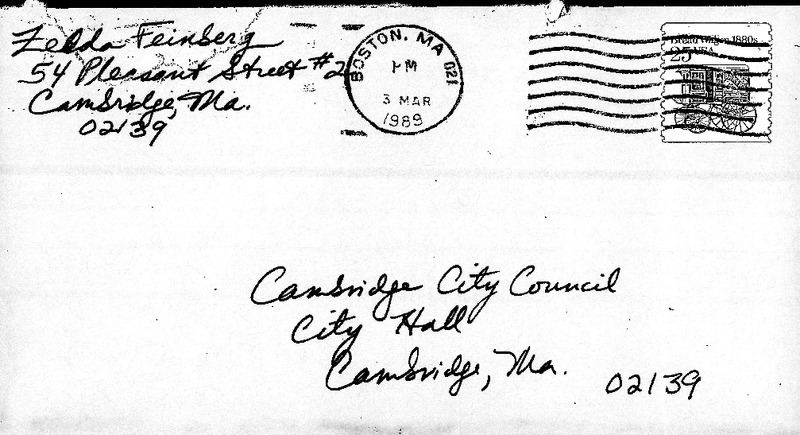 Zelda Feinberg
54 Pleasant Street #2
Cambridge, Ma.
02139
BOSTON, MA 021
PM
3 MAR
1989
Bread Wagon 1880s
25 USA
Cambridge City Council
City Hall
Cambridge, Ma.
02139